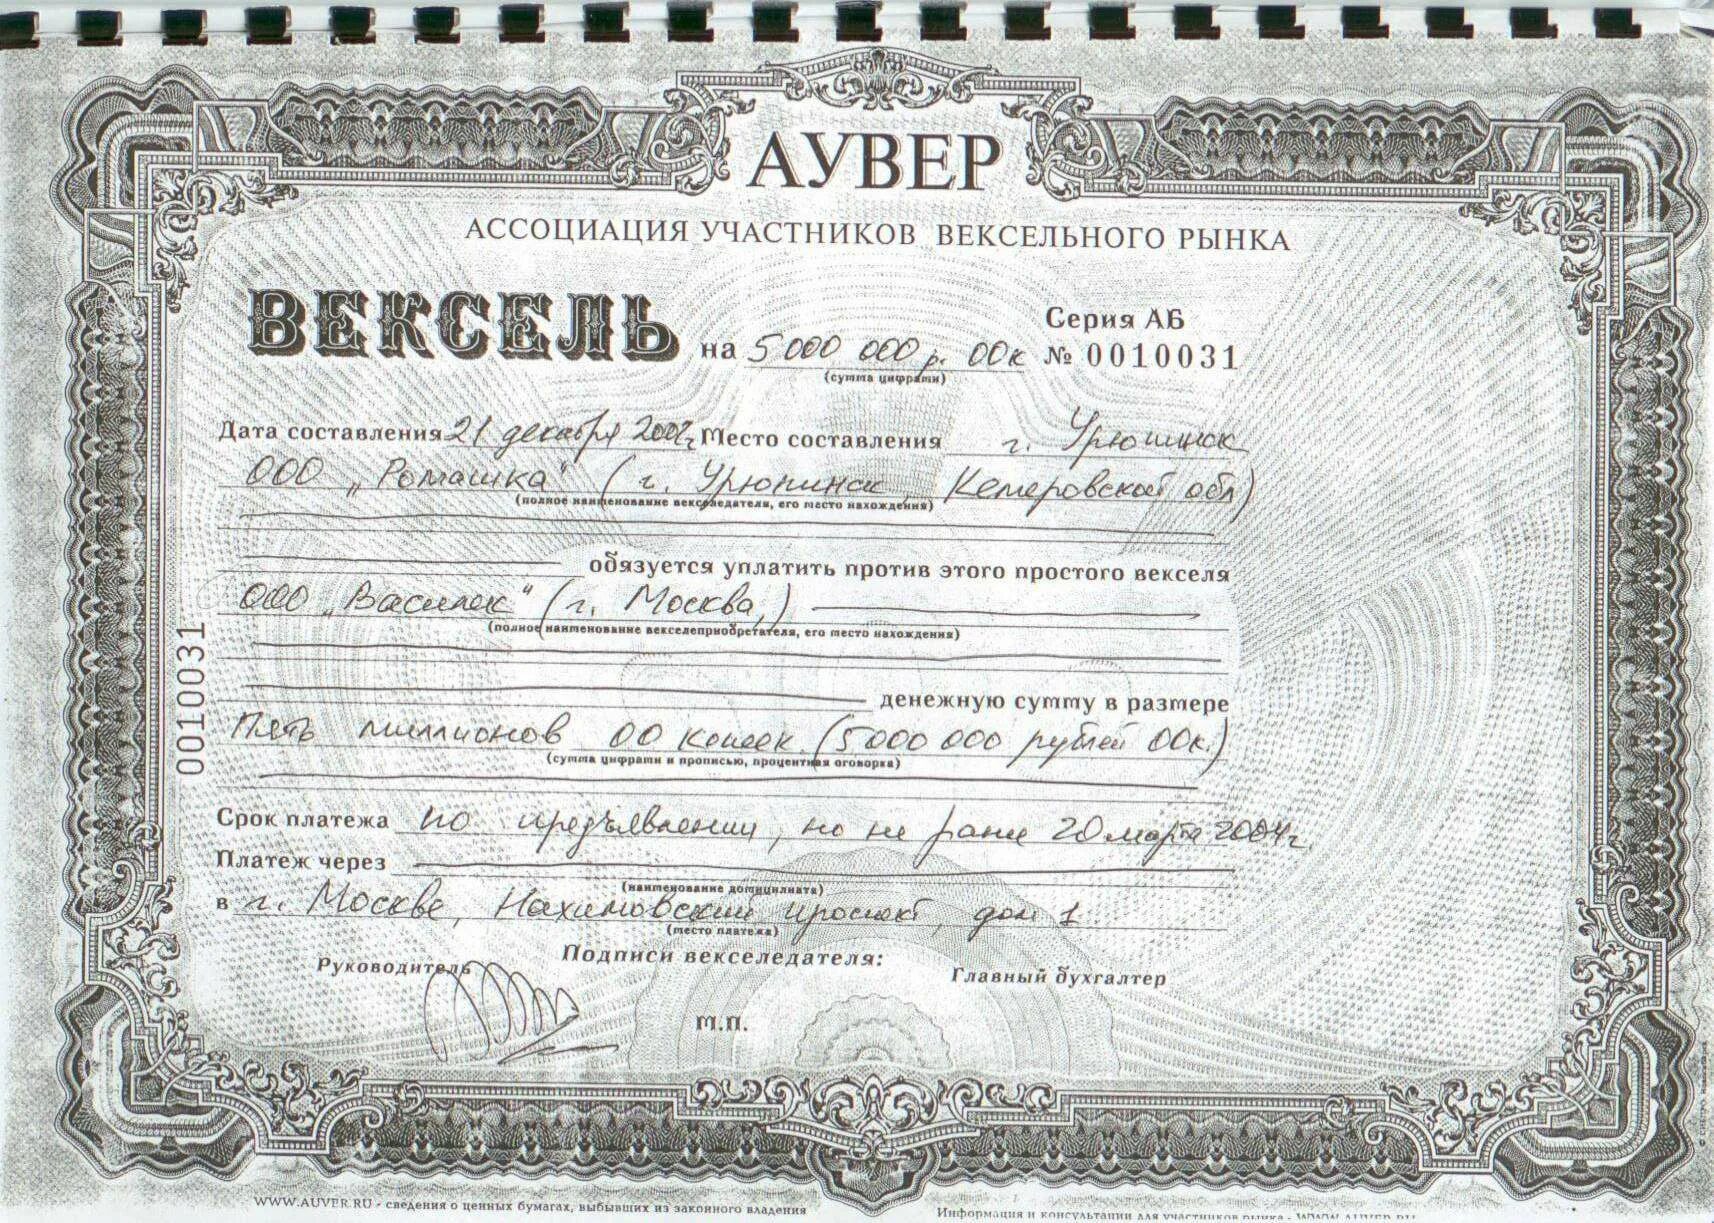 АУВЕР
АССОЦИАЦИЯ УЧАСТНИКОВ ВЕКСЕЛЬНОГО РЫНКА
ВЕКСЕЛЬ на 5 000 000 р. 00к
Серия АБ
№ 0010031
(сумма цифрами)
Дата составления 21 декабря 2002г. Место составления г. Урюпинск
ООО „Ромашка" (г. Урюпинск Кемеровской обл)
(полное наименование векселедателя, его место нахождения)
обязуется уплатить против этого простого векселя
ООО „Василек" (г. Москва,)
(полное наименование векселеприобретателя, его место нахождения)
денежную сумму в размере
Пять миллионов 00 копеек (5000 000 рублей 00к.)
(сумма цифрами и прописью, процентная оговорка)
Срок платежа по предъявлении, но не ранее 20 марта 2004г.
Платеж через
(наименование домицилиата)
в г. Москве, Нахимовский проспект, дом 1
(место платежа)
Подписи векселедателя:
Руководитель
Главный бухгалтер
М.П.
0010031
WWW.AUVER.RU - сведения о ценных бумагах, выбывших из законного владения
Информация и консультации для участников рынка - WWW.AUVER.RU